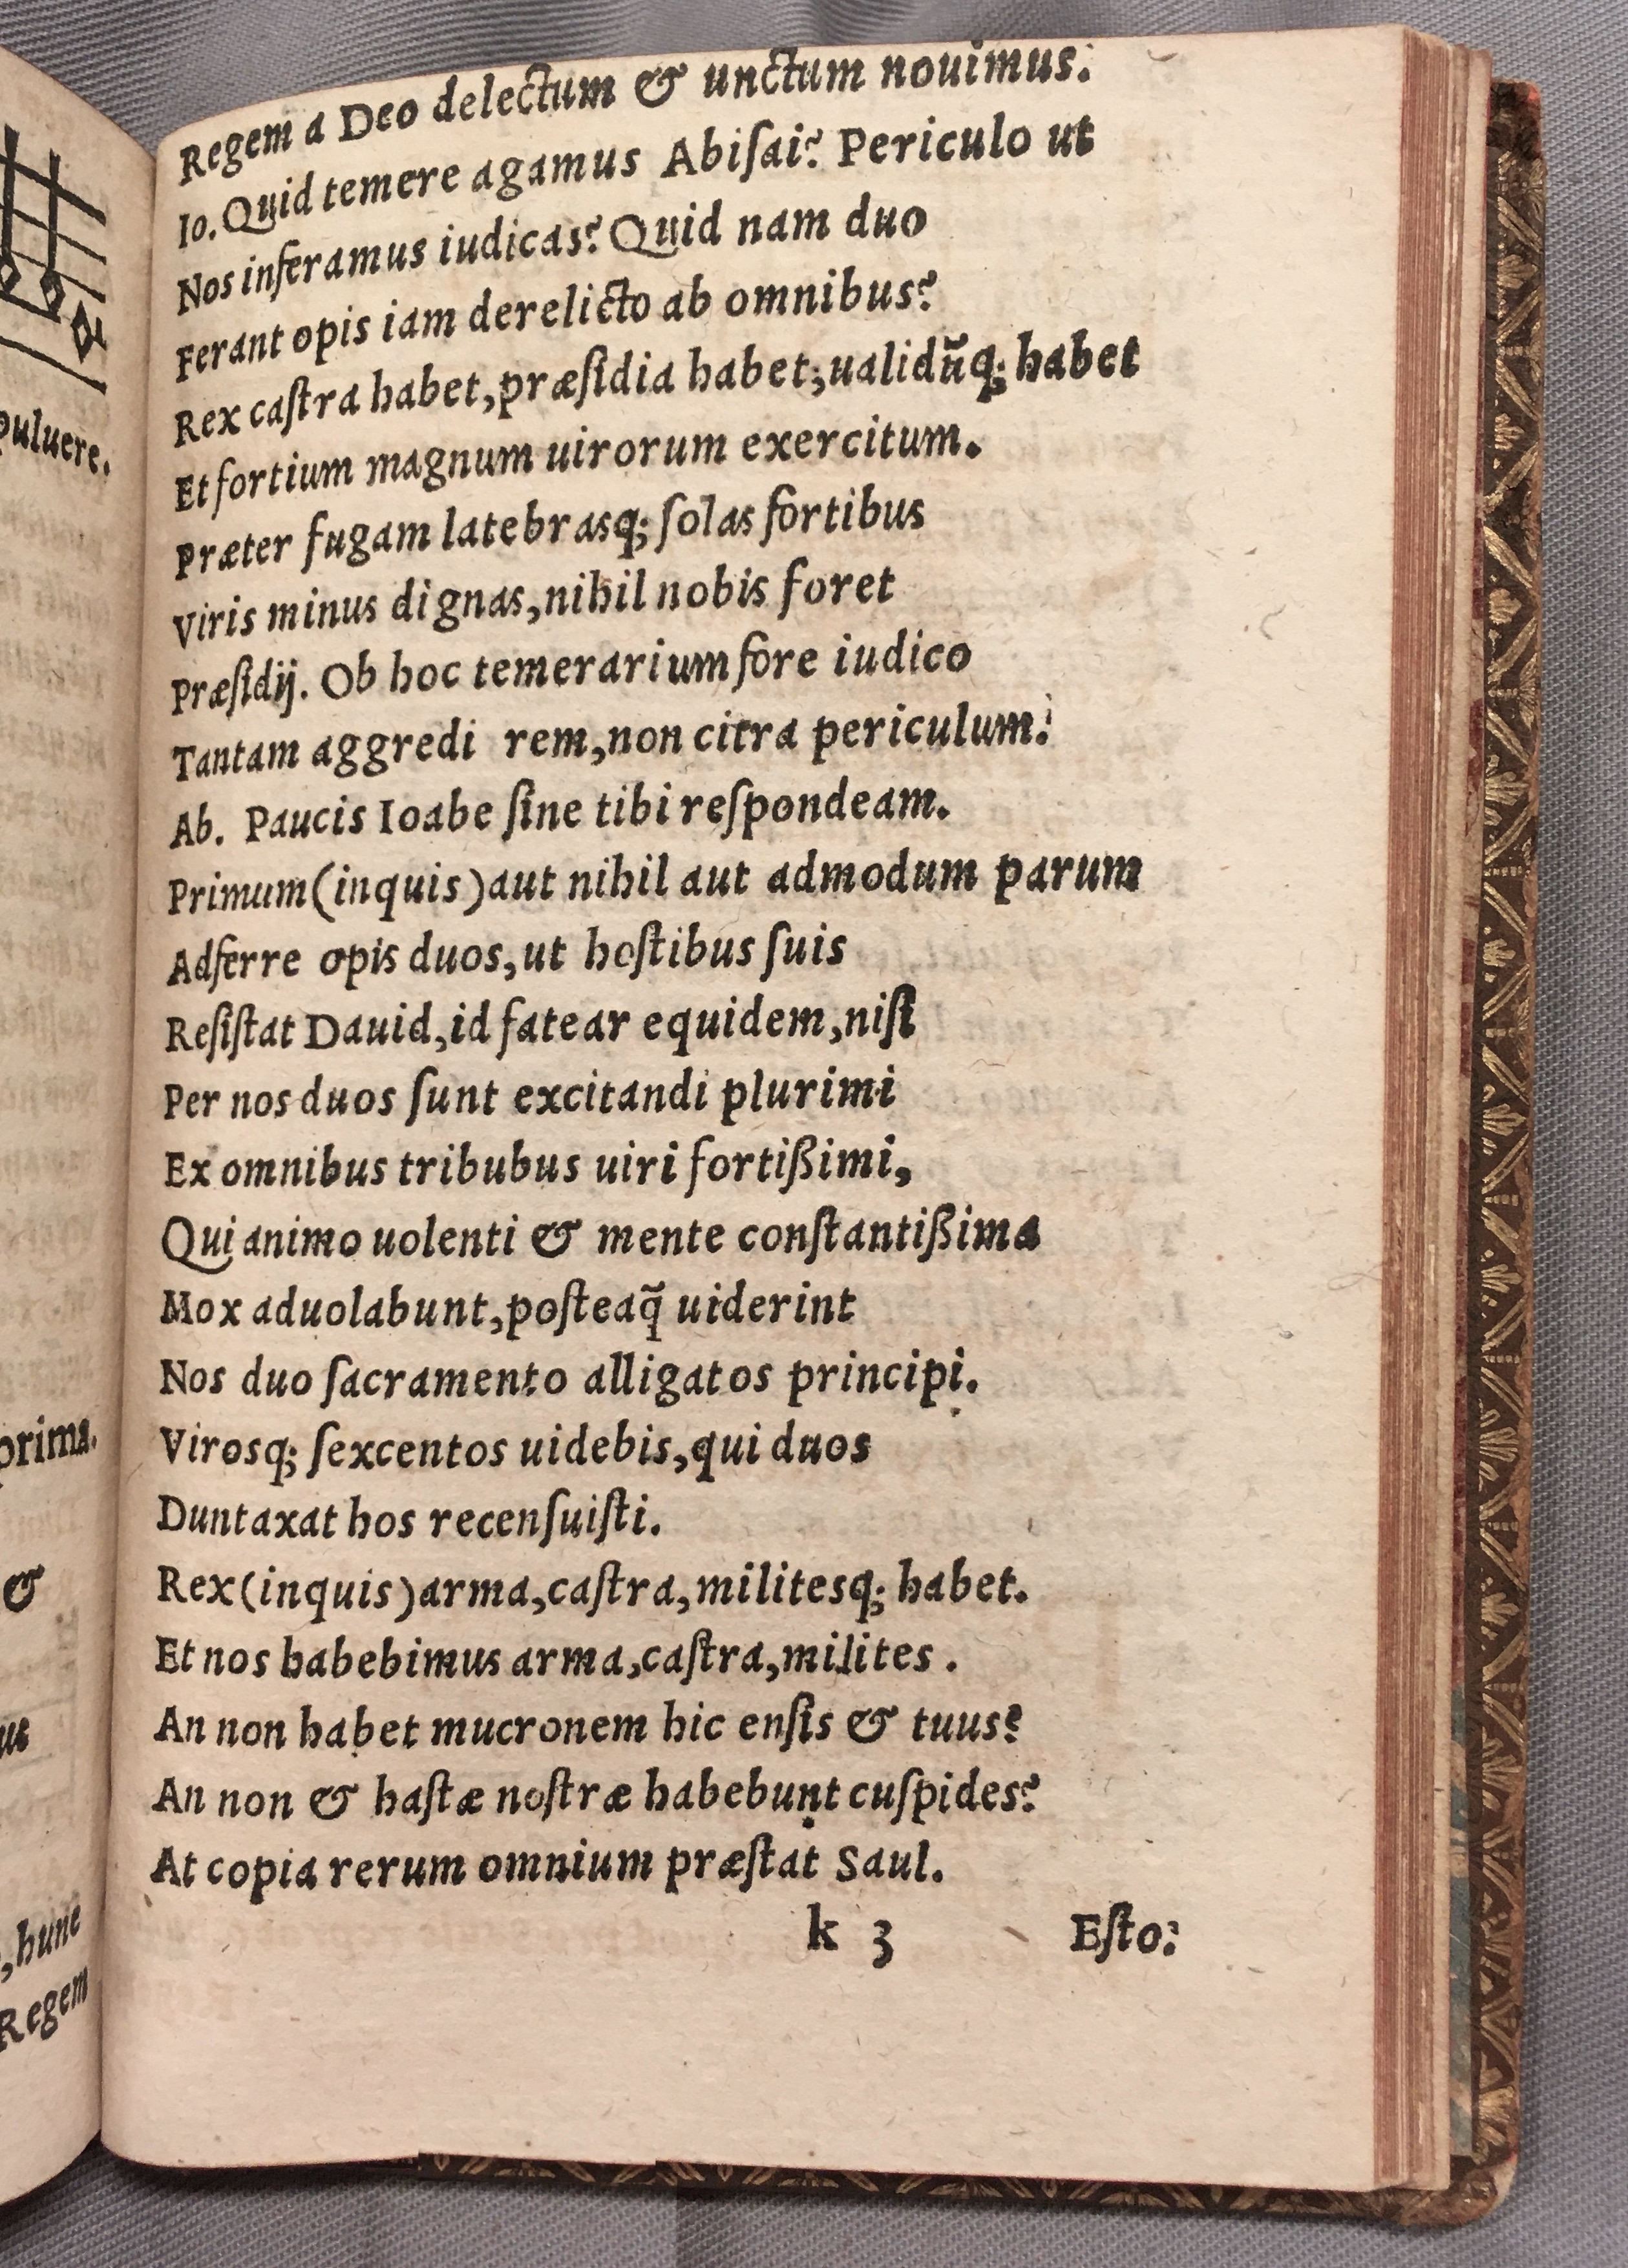 puluere.
prima.
&
ut
, hunc
Regem
Regem a Deo delectum & unctum nouimus.
Io. Quid temere agamus Abiſai? Periculo ut
Nos inferamus iudicas? Quid nam duo
Ferant opis iam derelicto ab omnibus?
Rex caſtra habet, præſidia habet; ualidūq; habet
Et fortium magnum uirorum exercitum.
Præter fugam latebrasq; ſolas fortibus
Viris minus dignas, nihil nobis foret
Præſidij. Ob hoc temerarium fore iudico
Tantam aggredi rem, non citra periculum.
Ab. Paucis Ioabe ſine tibi reſpondeam.
Primum (inquis) aut nihil aut admodum parum
Adferre opis duos, ut hoſtibus ſuis
Reſiſtat Dauid, id fatear equidem, niſi
Per nos duos ſunt excitandi plurimi
Ex omnibus tribubus uiri fortißimi,
Qui animo uolenti & mente conſtantißima
Mox aduolabunt, poſteaq̃ uiderint
Nos duo ſacramento alligatos principi.
Virosq; ſexcentos uidebis, qui duos
Duntaxat hos recenſuiſti.
Rex (inquis) arma, caſtra, militesq; habet.
Et nos habebimus arma, caſtra, milites.
An non habet mucronem hic enſis & tuus?
An non & haſtæ noſtræ habebunt cuſpides?
At copia rerum omnium præſtat Saul.
k 3 Eſto: